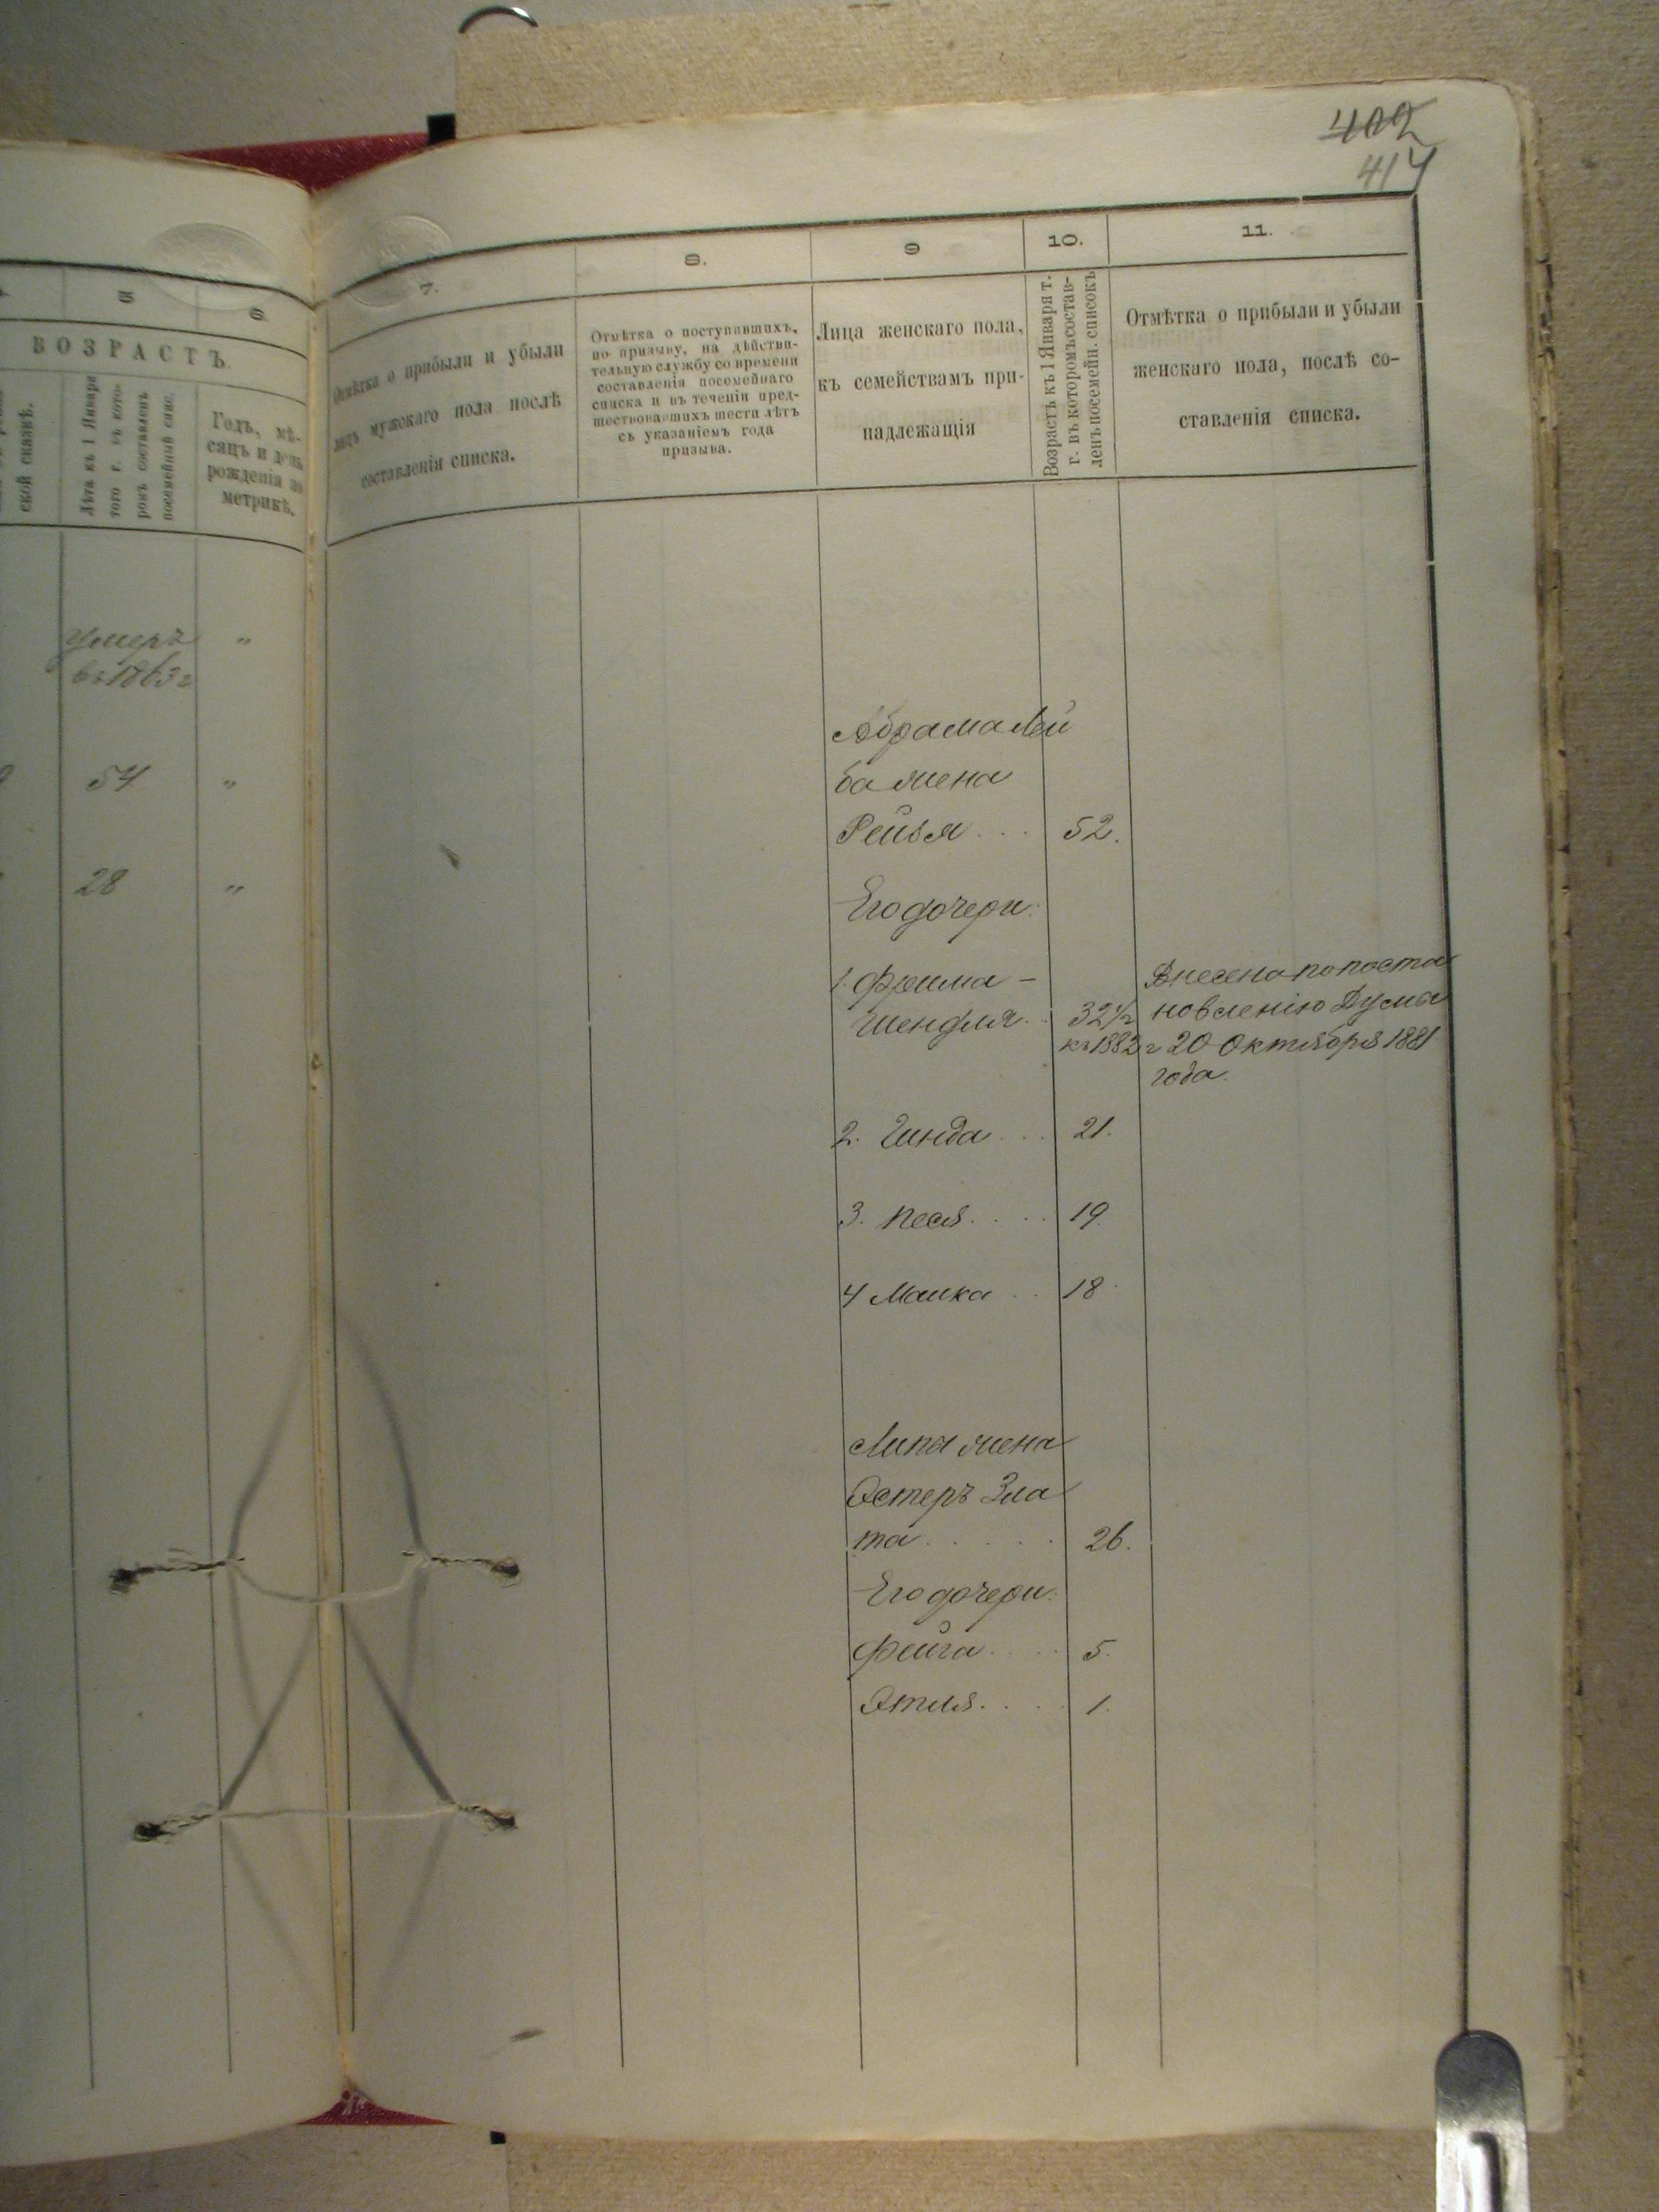 402
414
5
6
ВОЗРАСТЪ.
ской сказкѣ.
Лѣта къ 1 Января
того г. въ кото-
ромъ составленъ
посемейный спис.
Годъ, мѣ-
сяцъ и день
рожденія по
метрикѣ.
умеръ "
въ 1863 г
54 "
28 "
7.
8.
9
10.
11.
Отмѣтка о прибыли и убыли
лицъ мужскаго пола послѣ
составленія списка.
Отмѣтка о поступившихъ,
по призыву, на дѣйстви-
тельную службу со времени
составленія посемейнаго
списка и въ теченіи пред-
шествовавшихъ шести лѣтъ
съ указаніемъ года
призыва.
Лица женскаго пола,
къ семействамъ при-
надлежащія
Возрастъ къ 1 Января т.
г. въ которомъ состав-
ленъ посемейн. списокъ
Отмѣтка о прибыли и убыли
женскаго пола, послѣ со-
ставленія списка.
Абрама Лей
ба жена
Рейзя . . . 52.
Его дочери:
1. Фрима –
Шендля . . 32 1/2
къ 1882 г
Внесена по поста
новленію Думы
20 Октября 1881
года.
2. Гинда . . . 21.
3. Песя . . . . 19.
4 Малка . . 18.
Липы жена
Эстеръ Зла
та . . . . . . 26.
Его дочери:
Фейга . . . . 5.
Этля . . . . 1.